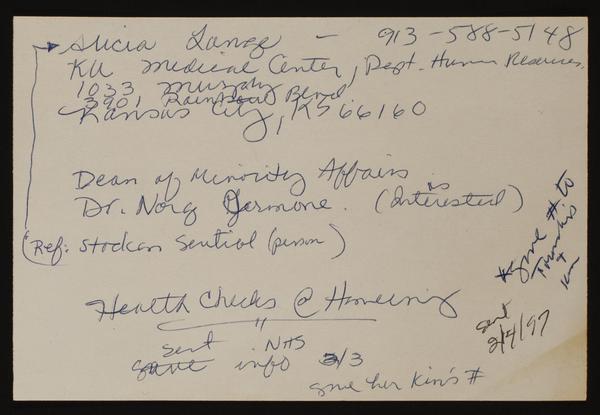 Alicia Lange - 913-588-5148
KU Medical Center, Dept. Human Resources,
1033 Murphy
3901 Rainbow Blvd
Kansas City, KS 66160
Dean of Minority Affairs
Dr. Norg Germone. (is Interested)
(Ref: Stockan Sential (person)
Health Checks @ Homecoming
sent NHS
info 3/3
give her Kin's #
*give # to
+
Kin
sent
2/4/97